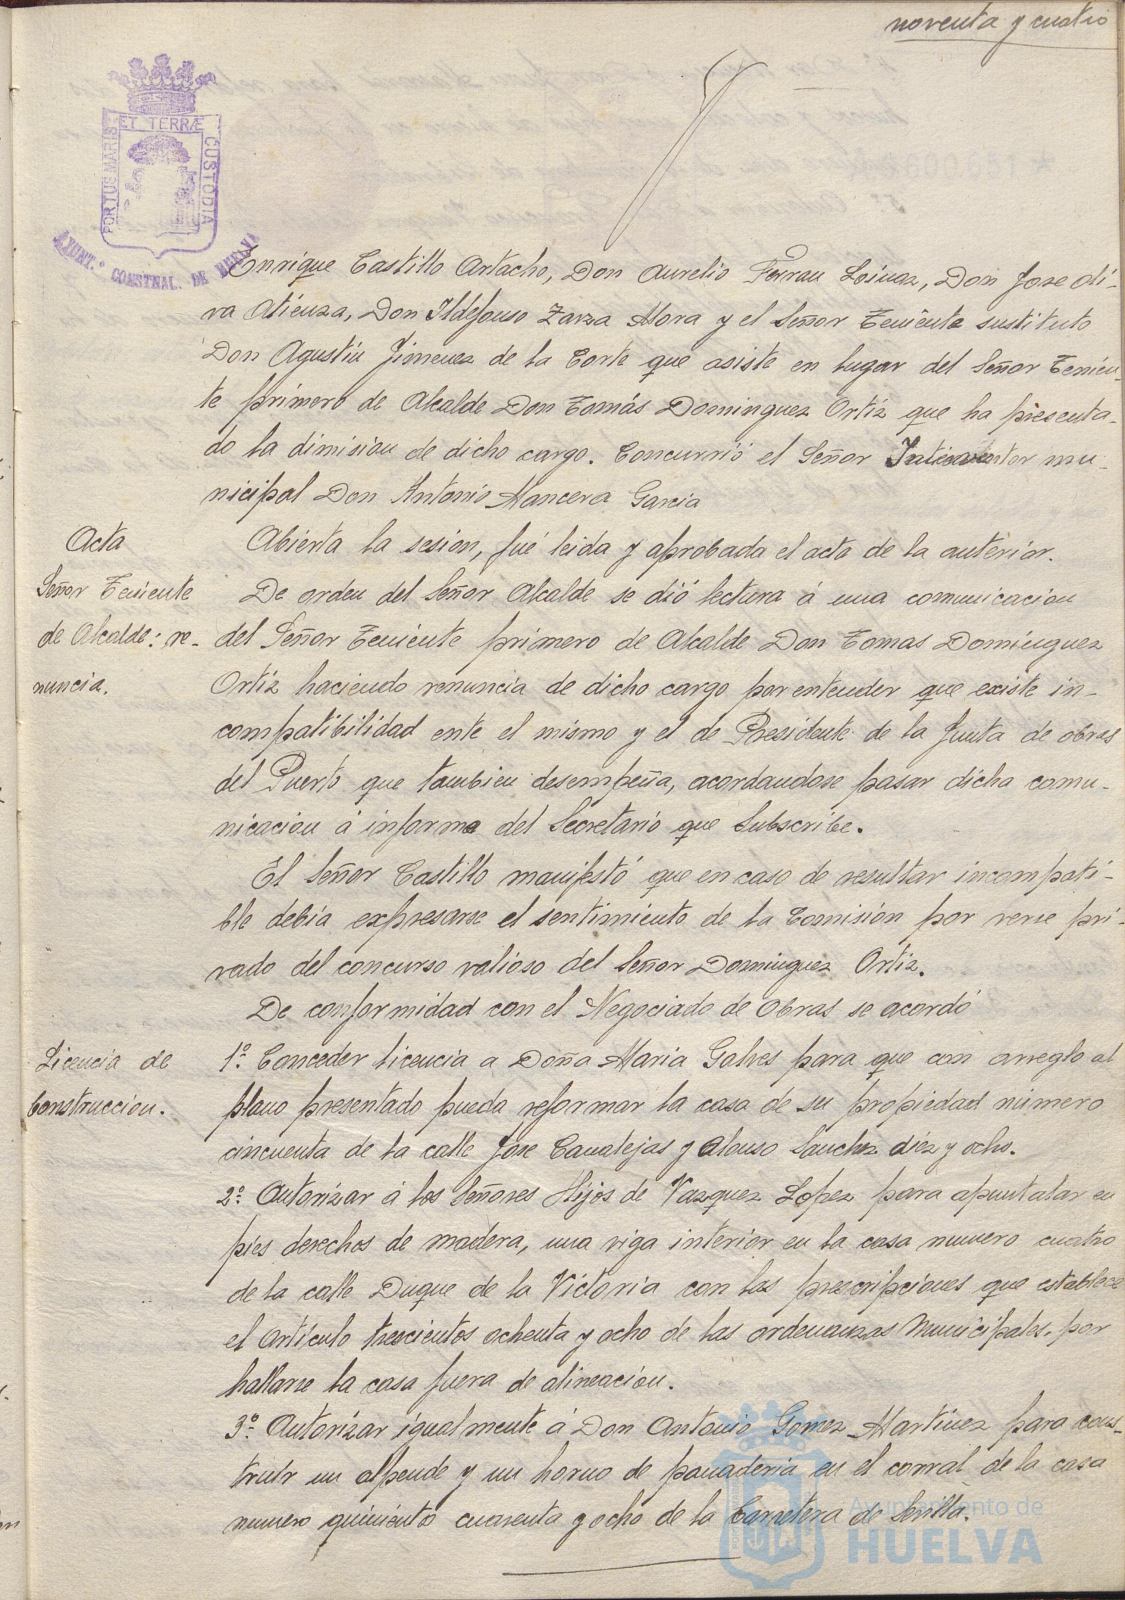 noventa y cuatro
PORTUS MARIS ET TERRÆ CUSTODIA
AYUNT.º CONSTNAL. DE HUELVA
Enrique Castillo Artacho, Don Aurelio Ferrau Loinaz, Don Jose Oli-
va Atienza, Don Ildefonso Zarza Mora y el Señor Teniente sustituto
Don Agustin Jimenez de la Corte que asiste en lugar del Señor Tenien-
te primero de Alcalde Don Tomás Dominguez Ortiz que ha presenta-
do la dimision de dicho cargo. Concurrió el Señor Interventor mu-
nicipal Don Antonio Mancera Garcia
Acta
Abierta la sesion, fué leida y aprobada el acta de la anterior.
Señor Teniente
de Alcalde: re-
nuncia.
De orden del Señor Alcalde se dió lectura á una comunicacion
del Señor Teniente primero de Alcalde Don Tomas Dominguez
Ortiz haciendo renuncia de dicho cargo por entender que existe in-
compatibilidad ente el mismo y el de Presidente de la Junta de obras
del Puerto que tambien desempeña, acordandose pasar dicha comu-
nicacion á informe del Secretario que Subscribe.
El Señor Castillo manifestó que en caso de resultar incompati-
ble debia expresarse el sentimiento de la Comisión por verse pri-
vado del concurso valioso del Señor Dominguez Ortiz.
De conformidad con el Negociado de Obras se acordó
Licencia de
Construccion.
1º. Conceder licencia a Doña Maria Galves para que con arreglo al
plano presentado pueda reformar la casa de su propiedad número
cincuenta de la calle Jose Canalejas y Alonso Sanchez diez y ocho.
2º. Autorizar á los Señores Hijos de Vazquez Lopez para apuntalar en
pies derechos de madera, una viga interior en la casa numero cuatro
de la calle Duque de la Victoria con las prescripciones que establece
el Artículo trescientos ochenta y ocho de las ordenanzas Municipales, por
hallarse la casa fuera de alineacion.
3º. Autorizar igualmente á Don Antonio Gomez Martinez para cons-
truir un alpende y un horno de panaderia en el corral de la casa
numero quinientos cuarenta y ocho de la Carretera de Sevilla.
Ayuntamiento de
HUELVA